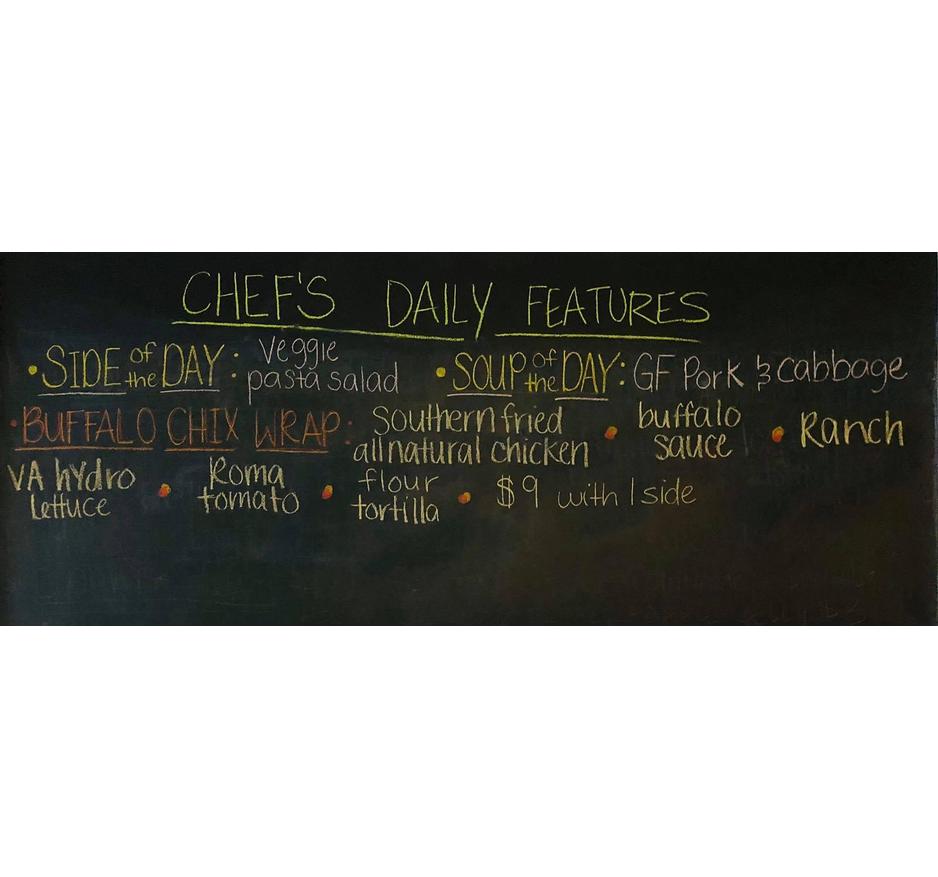 CHEF'S DAILY FEATURES
• SIDE of the DAY: Veggie pasta salad • SOUP of the DAY: GF Pork & cabbage
• BUFFALO CHIX WRAP: Southern fried all natural chicken • buffalo sauce • Ranch
VA hydro lettuce • Roma tomato • flour tortilla • $9 with 1 side